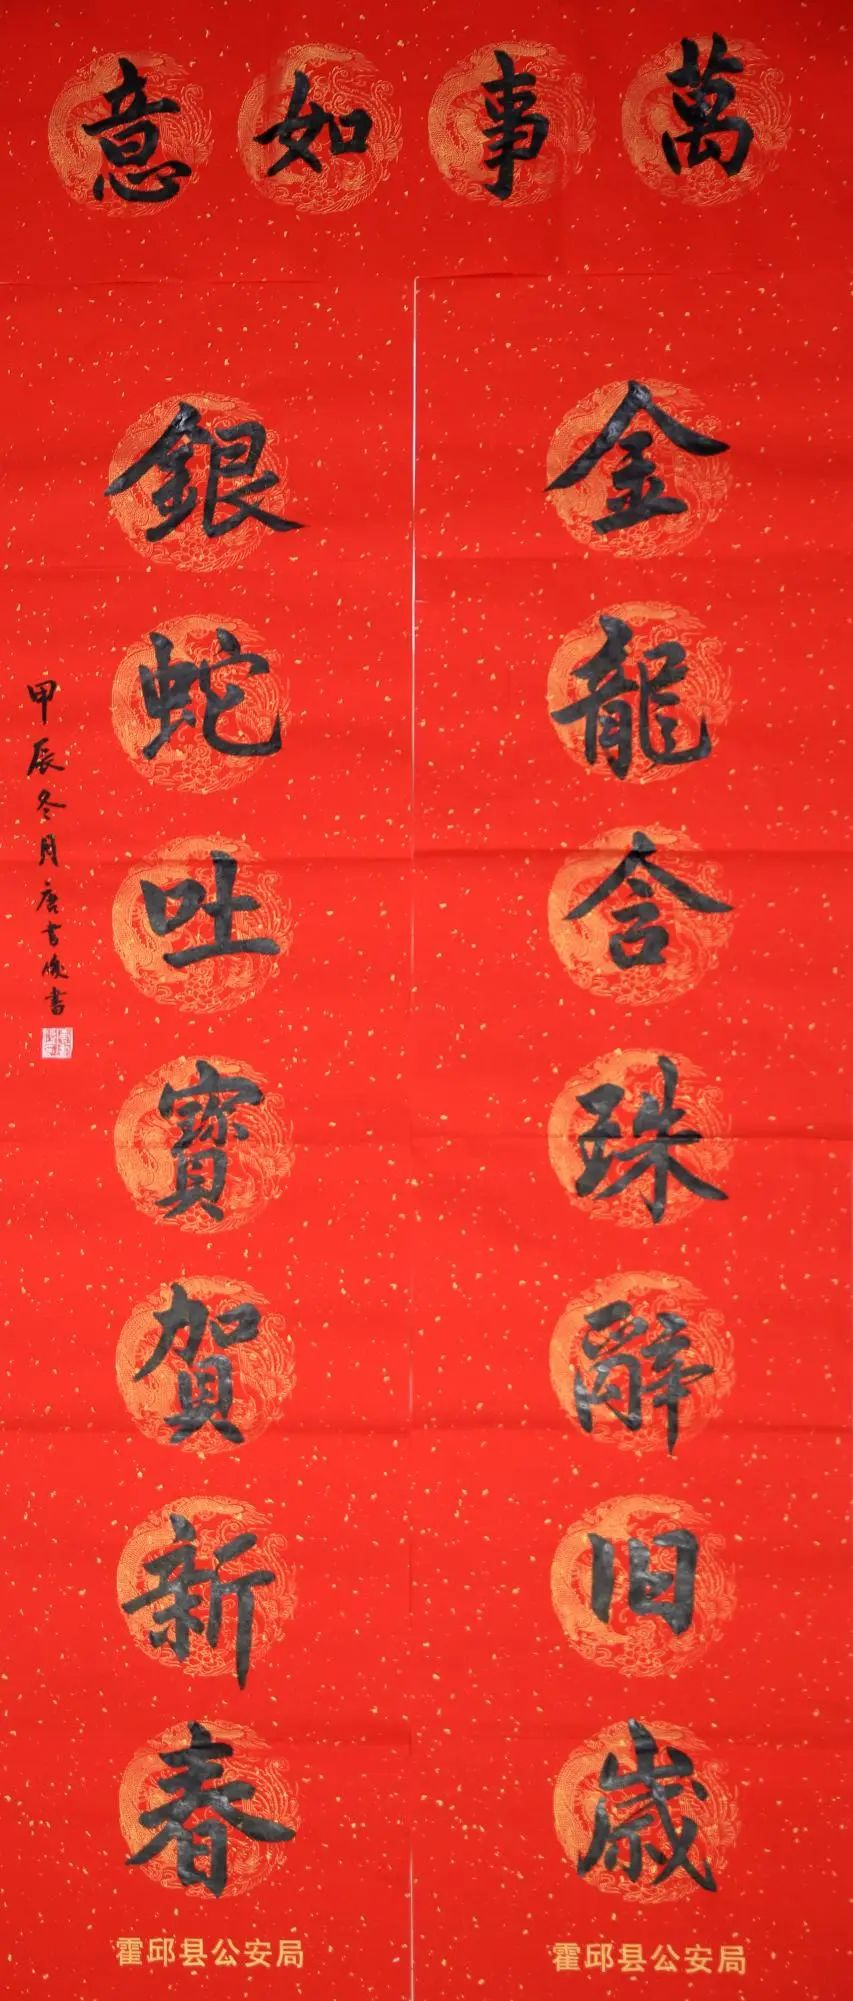 萬事如意
金龍含珠辭旧歲
霍邱县公安局
銀蛇吐寶賀新春
甲辰冬月唐書
霍邱县公安局